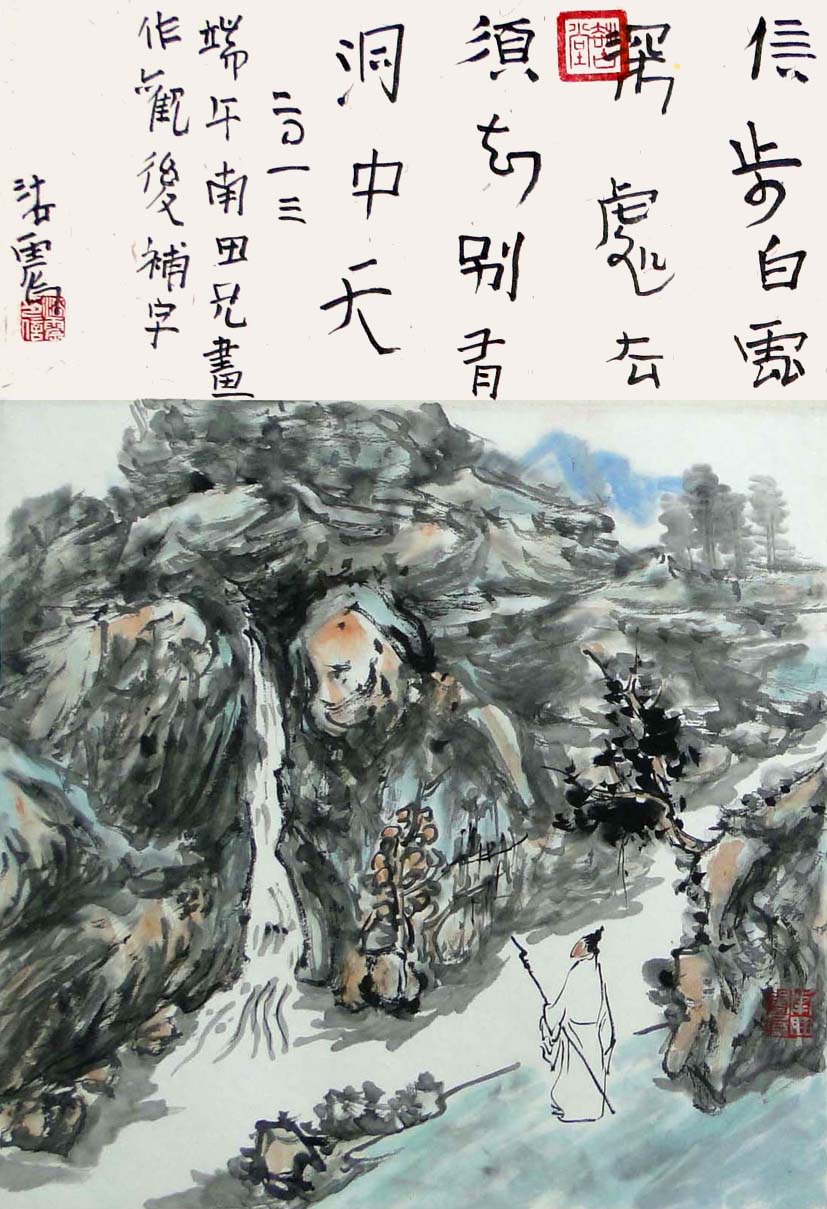 信步白雲
深處去
須知別有
洞中天
二〇一三
端午南田兄畫
作觀後補字